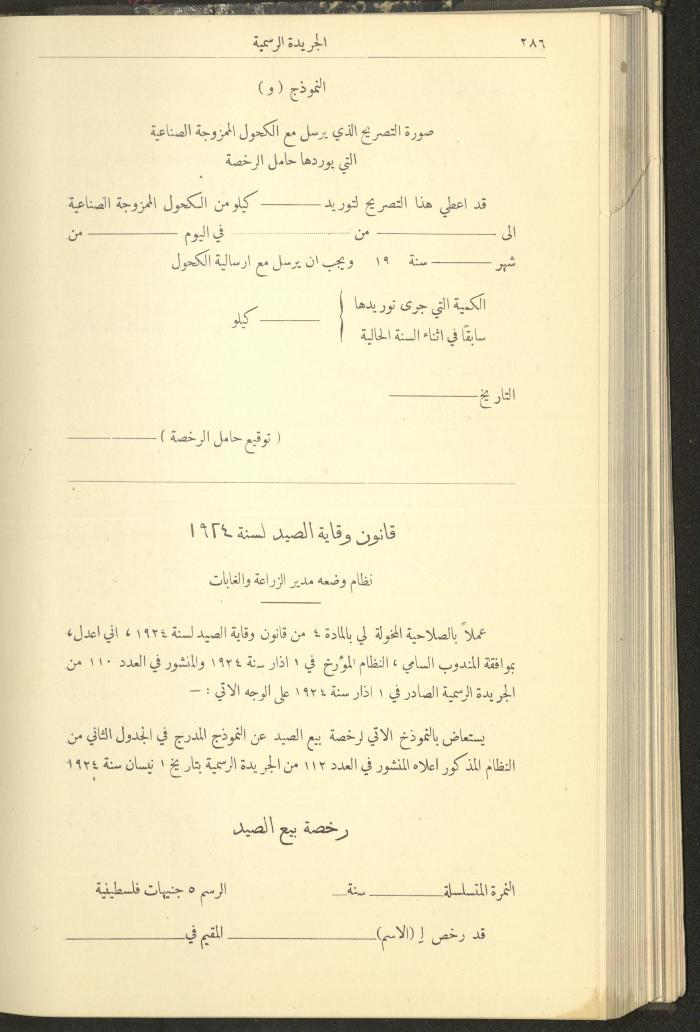 ٢٨٦ الجريدة الرسمية
النموذج (و)
صورة التصريح الذي يرسل مع الكحول الممزوجة الصناعية
التي يوردها حامل الرخصة
قد اعطي هذا التصريح لتوريد ــــــــ كيلو من الكحول الممزوجة الصناعية
الى ــــــــ من ............ في اليوم ــــــــ من
شهر ــــــــ سنة ١٩ ويجب ان يرسل مع ارسالية الكحول
الكمية التي جرى توريدها
سابقًا في اثناء السنة الحالية } ــــــــ كيلو
التاريخ ــــــــ
(توقيع حامل الرخصة) ــــــــ
قانون وقاية الصيد لسنة ١٩٢٤
نظام وضعه مدير الزراعة والغابات
عملاً بالصلاحية المخولة لي بالمادة ٤ من قانون وقاية الصيد لسنة ١٩٢٤ ، اني اعدل،
بموافقة المندوب السامي ، النظام المؤرخ في ١ اذار سنة ١٩٢٤ والمنشور في العدد ١١٠ من
الجريدة الرسمية الصادر في ١ اذار سنة ١٩٢٤ على الوجه الاتي : —
يستعاض بالنموذخ الاتي لرخصة بيع الصيد عن النموذج المدرج في الجدول الثاني من
النظام المذكور اعلاه المنشور في العدد ١١٢ من الجريدة الرسمية بتاريخ ١ نيسان سنة ١٩٢٤
رخصة بيع الصيد
النمرة المتسلسلة ــــــــ سنة ــ الرسم ٥ جنيهات فلسطينية
قد رخص لـ (الاسم) ــــــــ المقيم في ــــــــ